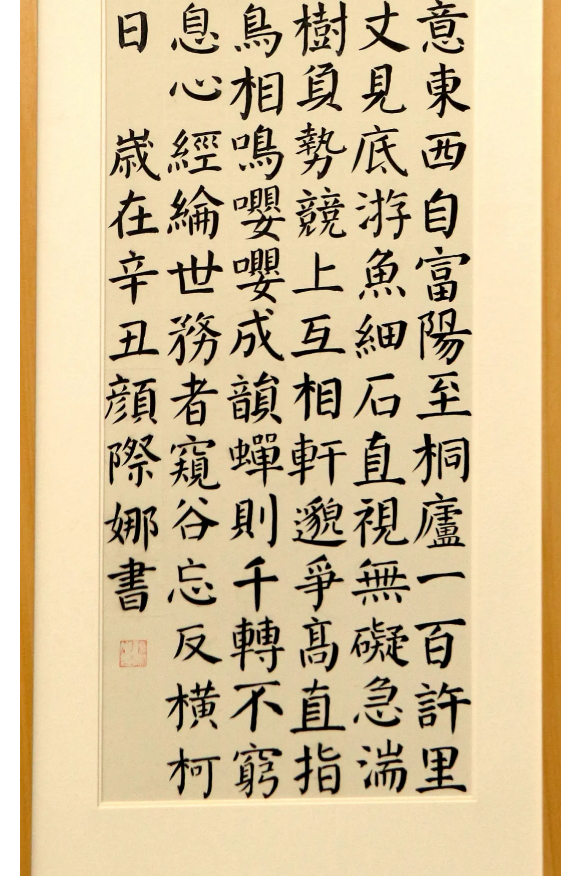 意東西自富陽至桐廬一百許里
丈見底游魚細石直視無礙急湍
樹負勢競上互相軒邈爭高直指
鳥相鳴嚶嚶成韻蟬則千轉不窮
息心經綸世務者窺谷忘反橫柯
日 嵗在辛丑顏際娜書